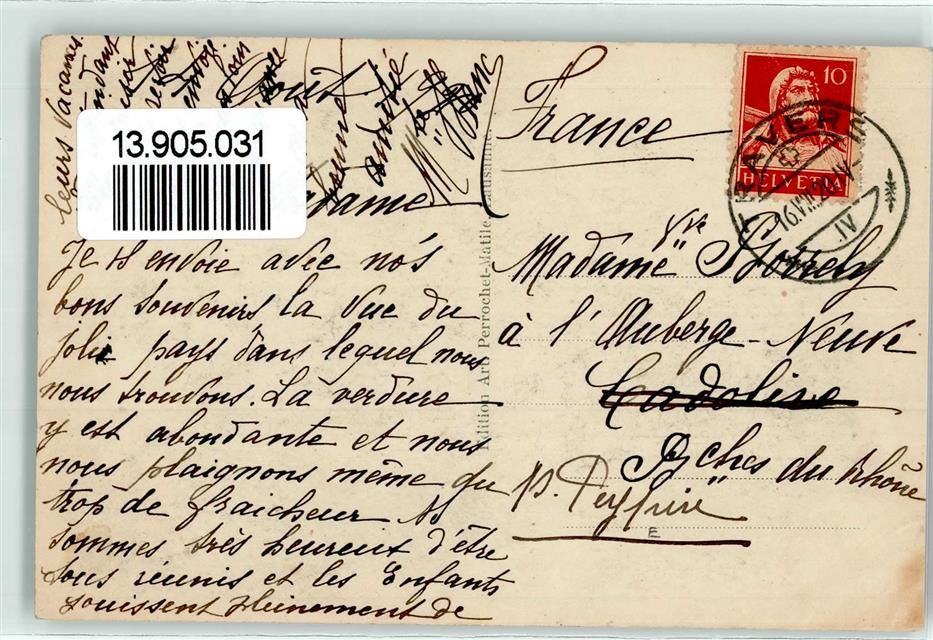 13.905.031
Je vs envoie avec nos
bons souvenirs la vue du
joli pays dans lequel nous
nous trouvons. La verdure
y est abondante et nous
nous plaignons même du
trop de fraicheur Ns
sommes très heureux d'être
tous réunis et les Enfants
jouissent pleinement de
leurs vacances.
Edition Art. Perrochet-Matile, Lausanne
France
10
HELVETIA
TRAVERS
IV
Vve
Madame Borrely
à l'Auberge-Neuve
Cadolive
p. Peypin
Bches du Rhône